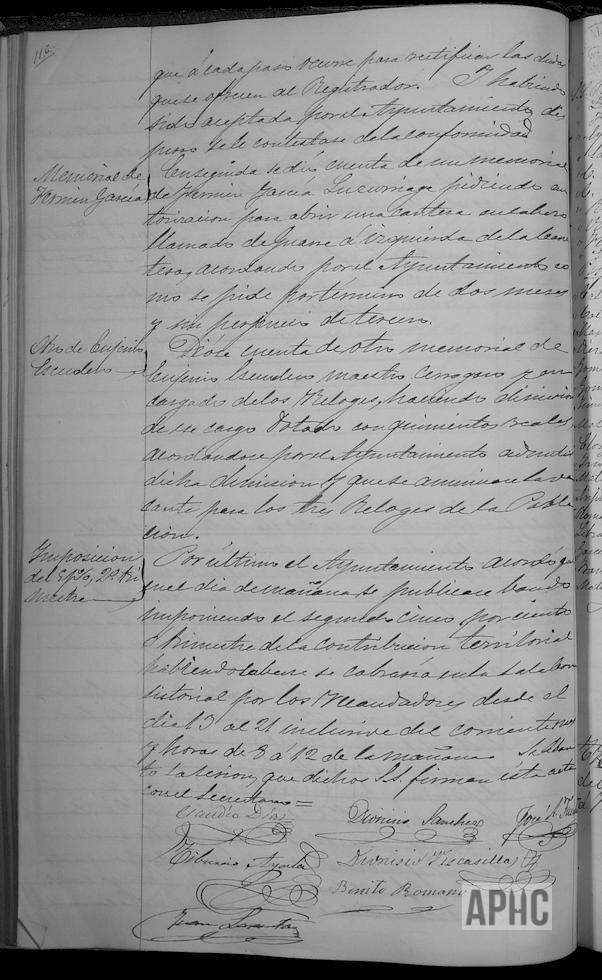 que á cada paso ocurre para rectificar las dudas
que se ofrecen al Registrador. Y habiendo
sido aceptada por el Ayuntamiento, dis
puso se le contestase de la conformidad
Memorial de
Fermin García
Enseguida se dió cuenta de un memorial
de Fermin García Luzuriaga pidiendo au
torizacion para abrir una cantera en
llamado de á izquierda de la
acordando por el Ayuntamiento co
mo se pide por término de dos meses
y sin perjuicio de tercero.
Otro de Eugenio
Escudero
Dióse cuenta de otro memorial de
Eugenio Escudero maestro Cerragero y en
cargado de los Reloges, haciendo dimision
de ese cargo Dotado con quinientos reales,
acordandose por el Ayuntamiento admitir
dicha dimision y que se anunciase la va
cante para los tres Reloges de la Pobla
cion.
Imposicion
del 5 p%, 2º tri
mestre
Por último el Ayuntamiento acordó que
en el dia de mañana se publicase bando
imponiendo el segundo cinco por ciento
ó trimestre de la contribucion territorial
habiendo saberse se cobraría en la sala con
sistorial por los Recaudadores desde el
dia 13 al 21 inclusive del corriente mes
y horas de 8 á 12 de la mañana. Se levan
tó la sesion, que dichos S.S. firman esta acta
con el Secretario =
Claudio Díaz Dionisio Sanchez José A.
Tiburcio Ayala Dionisio Viscasillas
Benito Romano
Juan
APHC